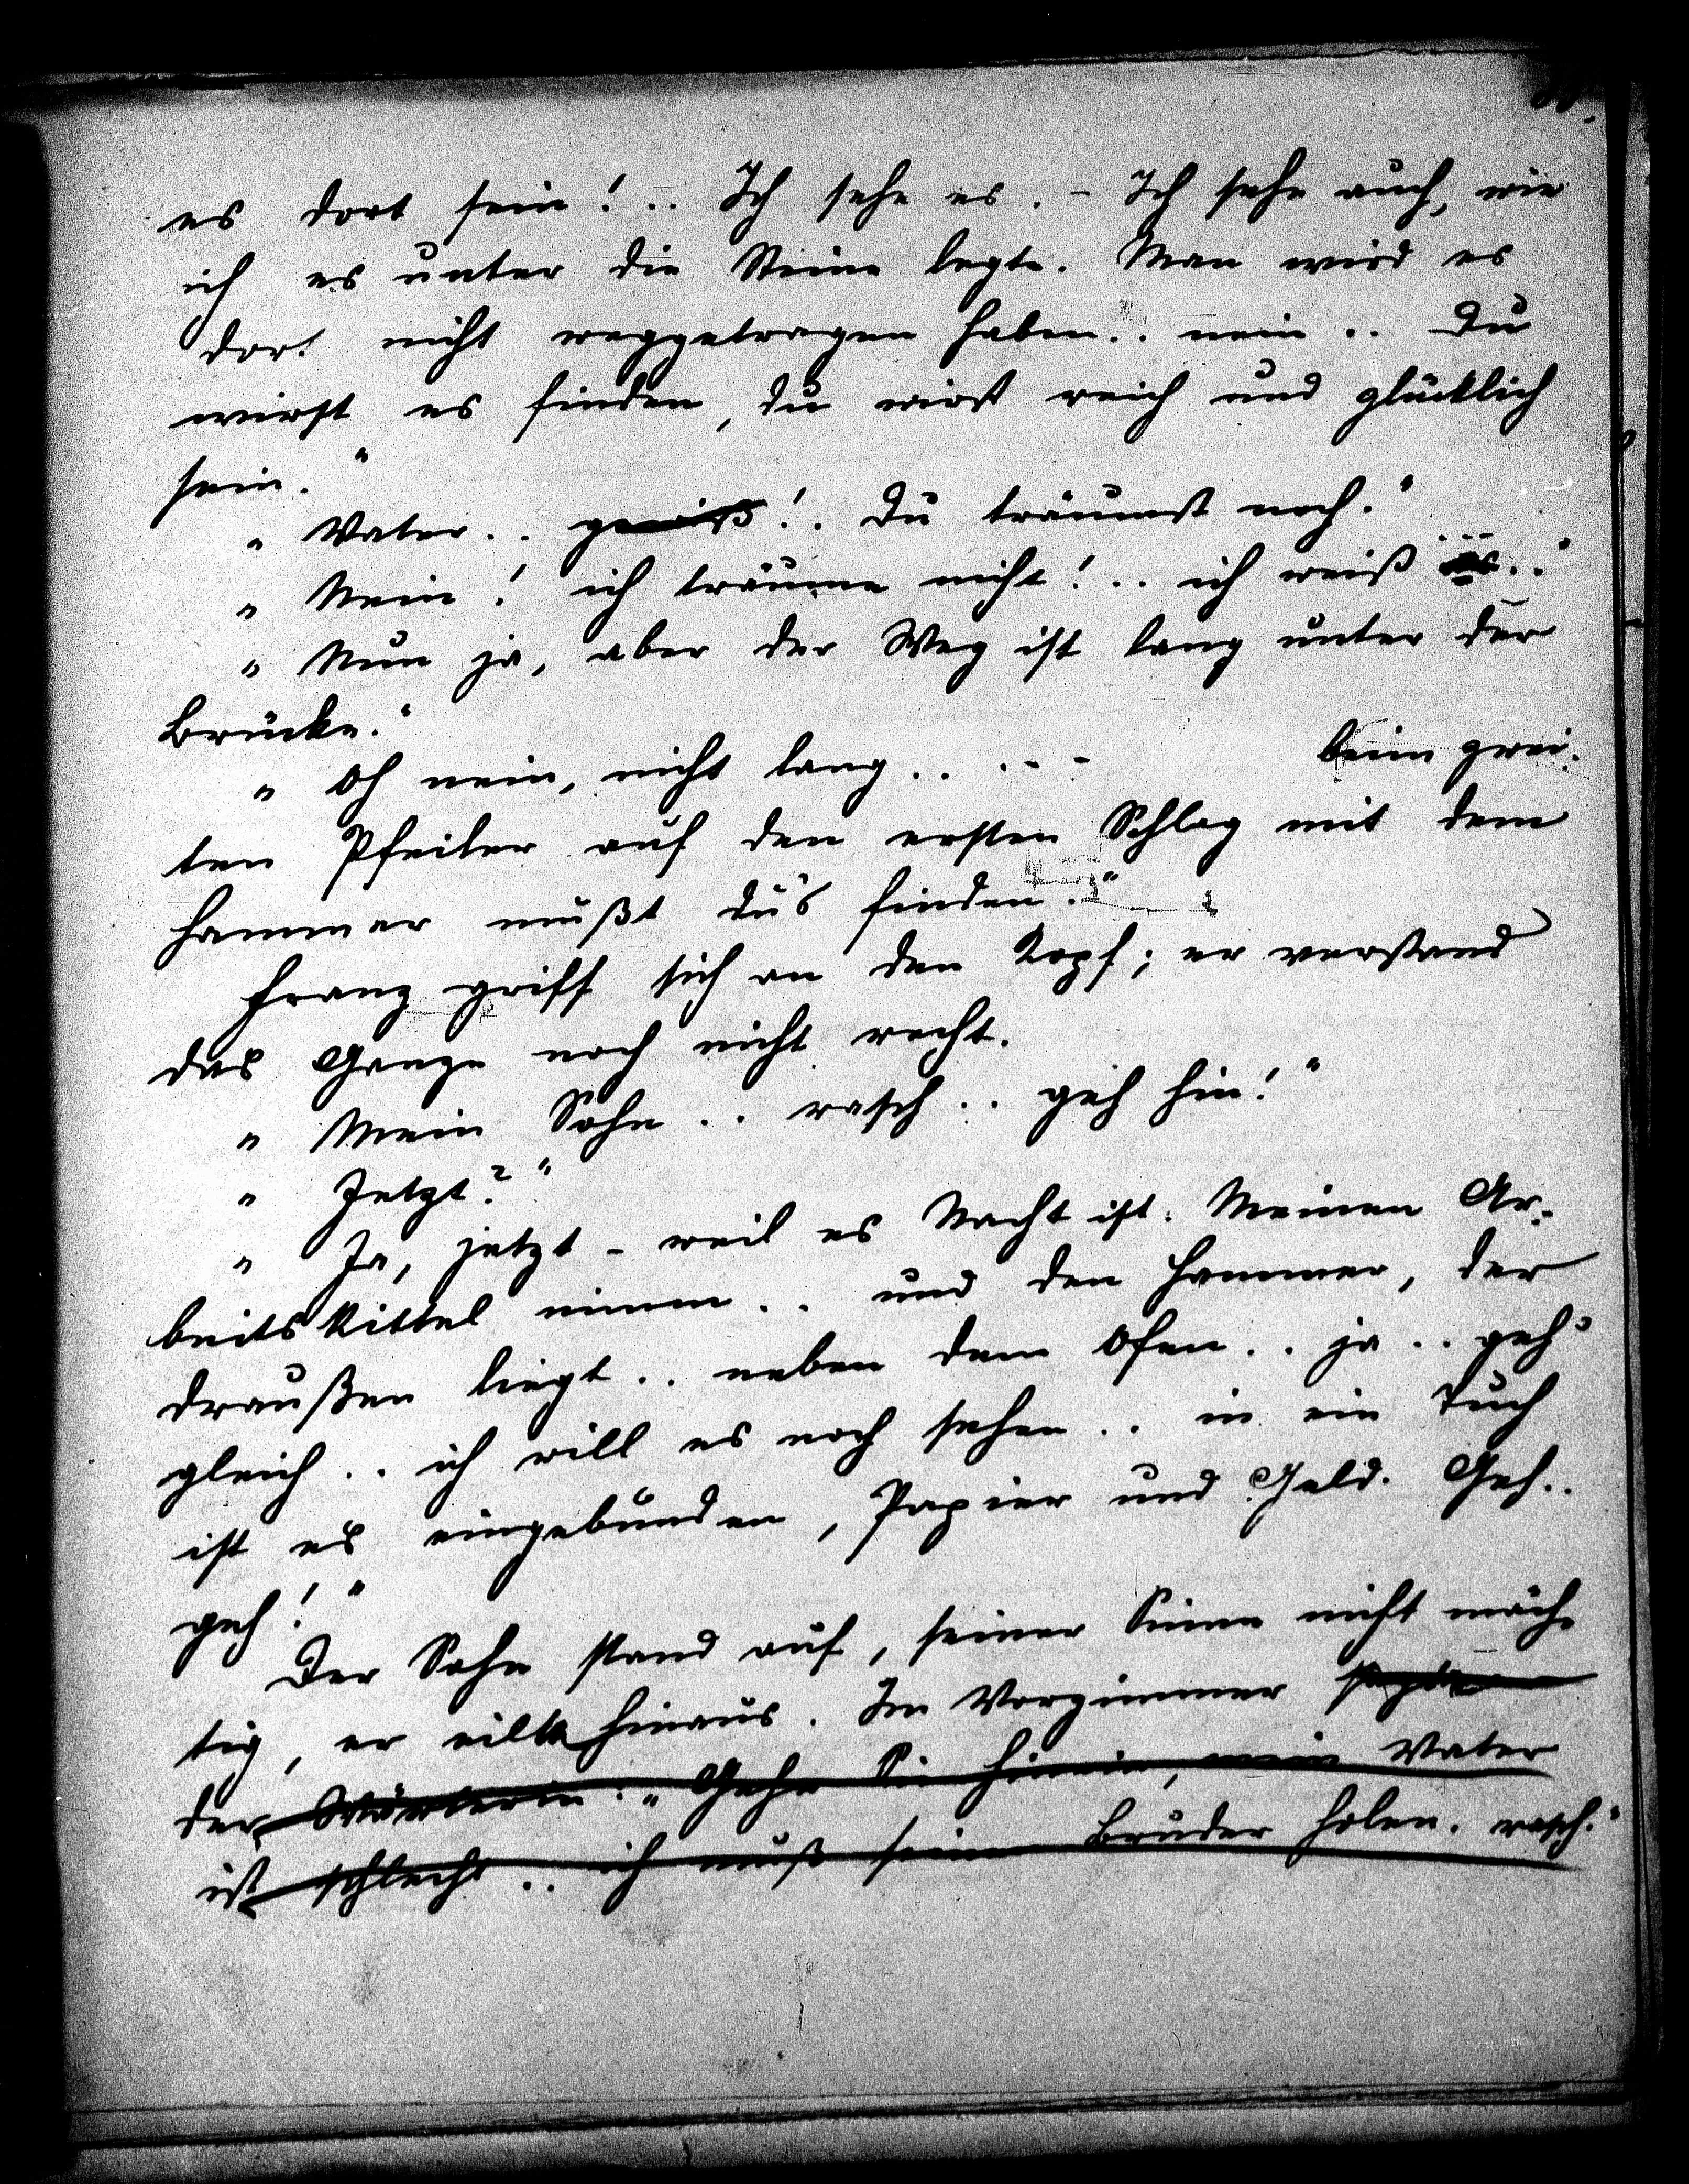 es dort sein! .. Ich sehe es. - Ich sehe auch, wie
ich es unter die Steine legte. Man wird es
dort nicht weggetragen haben .. nein .. Du
wirst es finden, du wirst reich und glücklich
sein."
„Vater .. gewiß! . Du träumst noch."
„Nein! ich träume nicht! .. ich weiß es .."
„Nun ja, aber der Weg ist lang unter der
Brücke."
„Oh nein, nicht lang .. . - - beim zwei-
ten Pfeiler auf den ersten Schlag mit dem
Hammer mußt du's finden."
Franz griff sich an den Kopf; er verstand
das Ganze noch nicht recht.
„Mein Sohn .. rasch .. geh hin!"
„Jetzt?"
„Ja, jetzt - weil es Nacht ist. Meinen Ar-
beitskittel nimm .. und den Hammer, der
draußen liegt .. neben dem Ofen .. ja .. geh'
gleich .. ich will es noch sehen .. in ein Tuch
ist es eingebunden, Papier und Geld. Geh ..
geh!"
Der Sohn stand auf, seiner Sinne nicht mäch-
tig, er eilte hinaus. Im Vorzimmer sagte
der Wärterin: „Gehn Sie hinein, mein Vater
ist schlecht .. ich muß seinen Bruder holen. rasch."